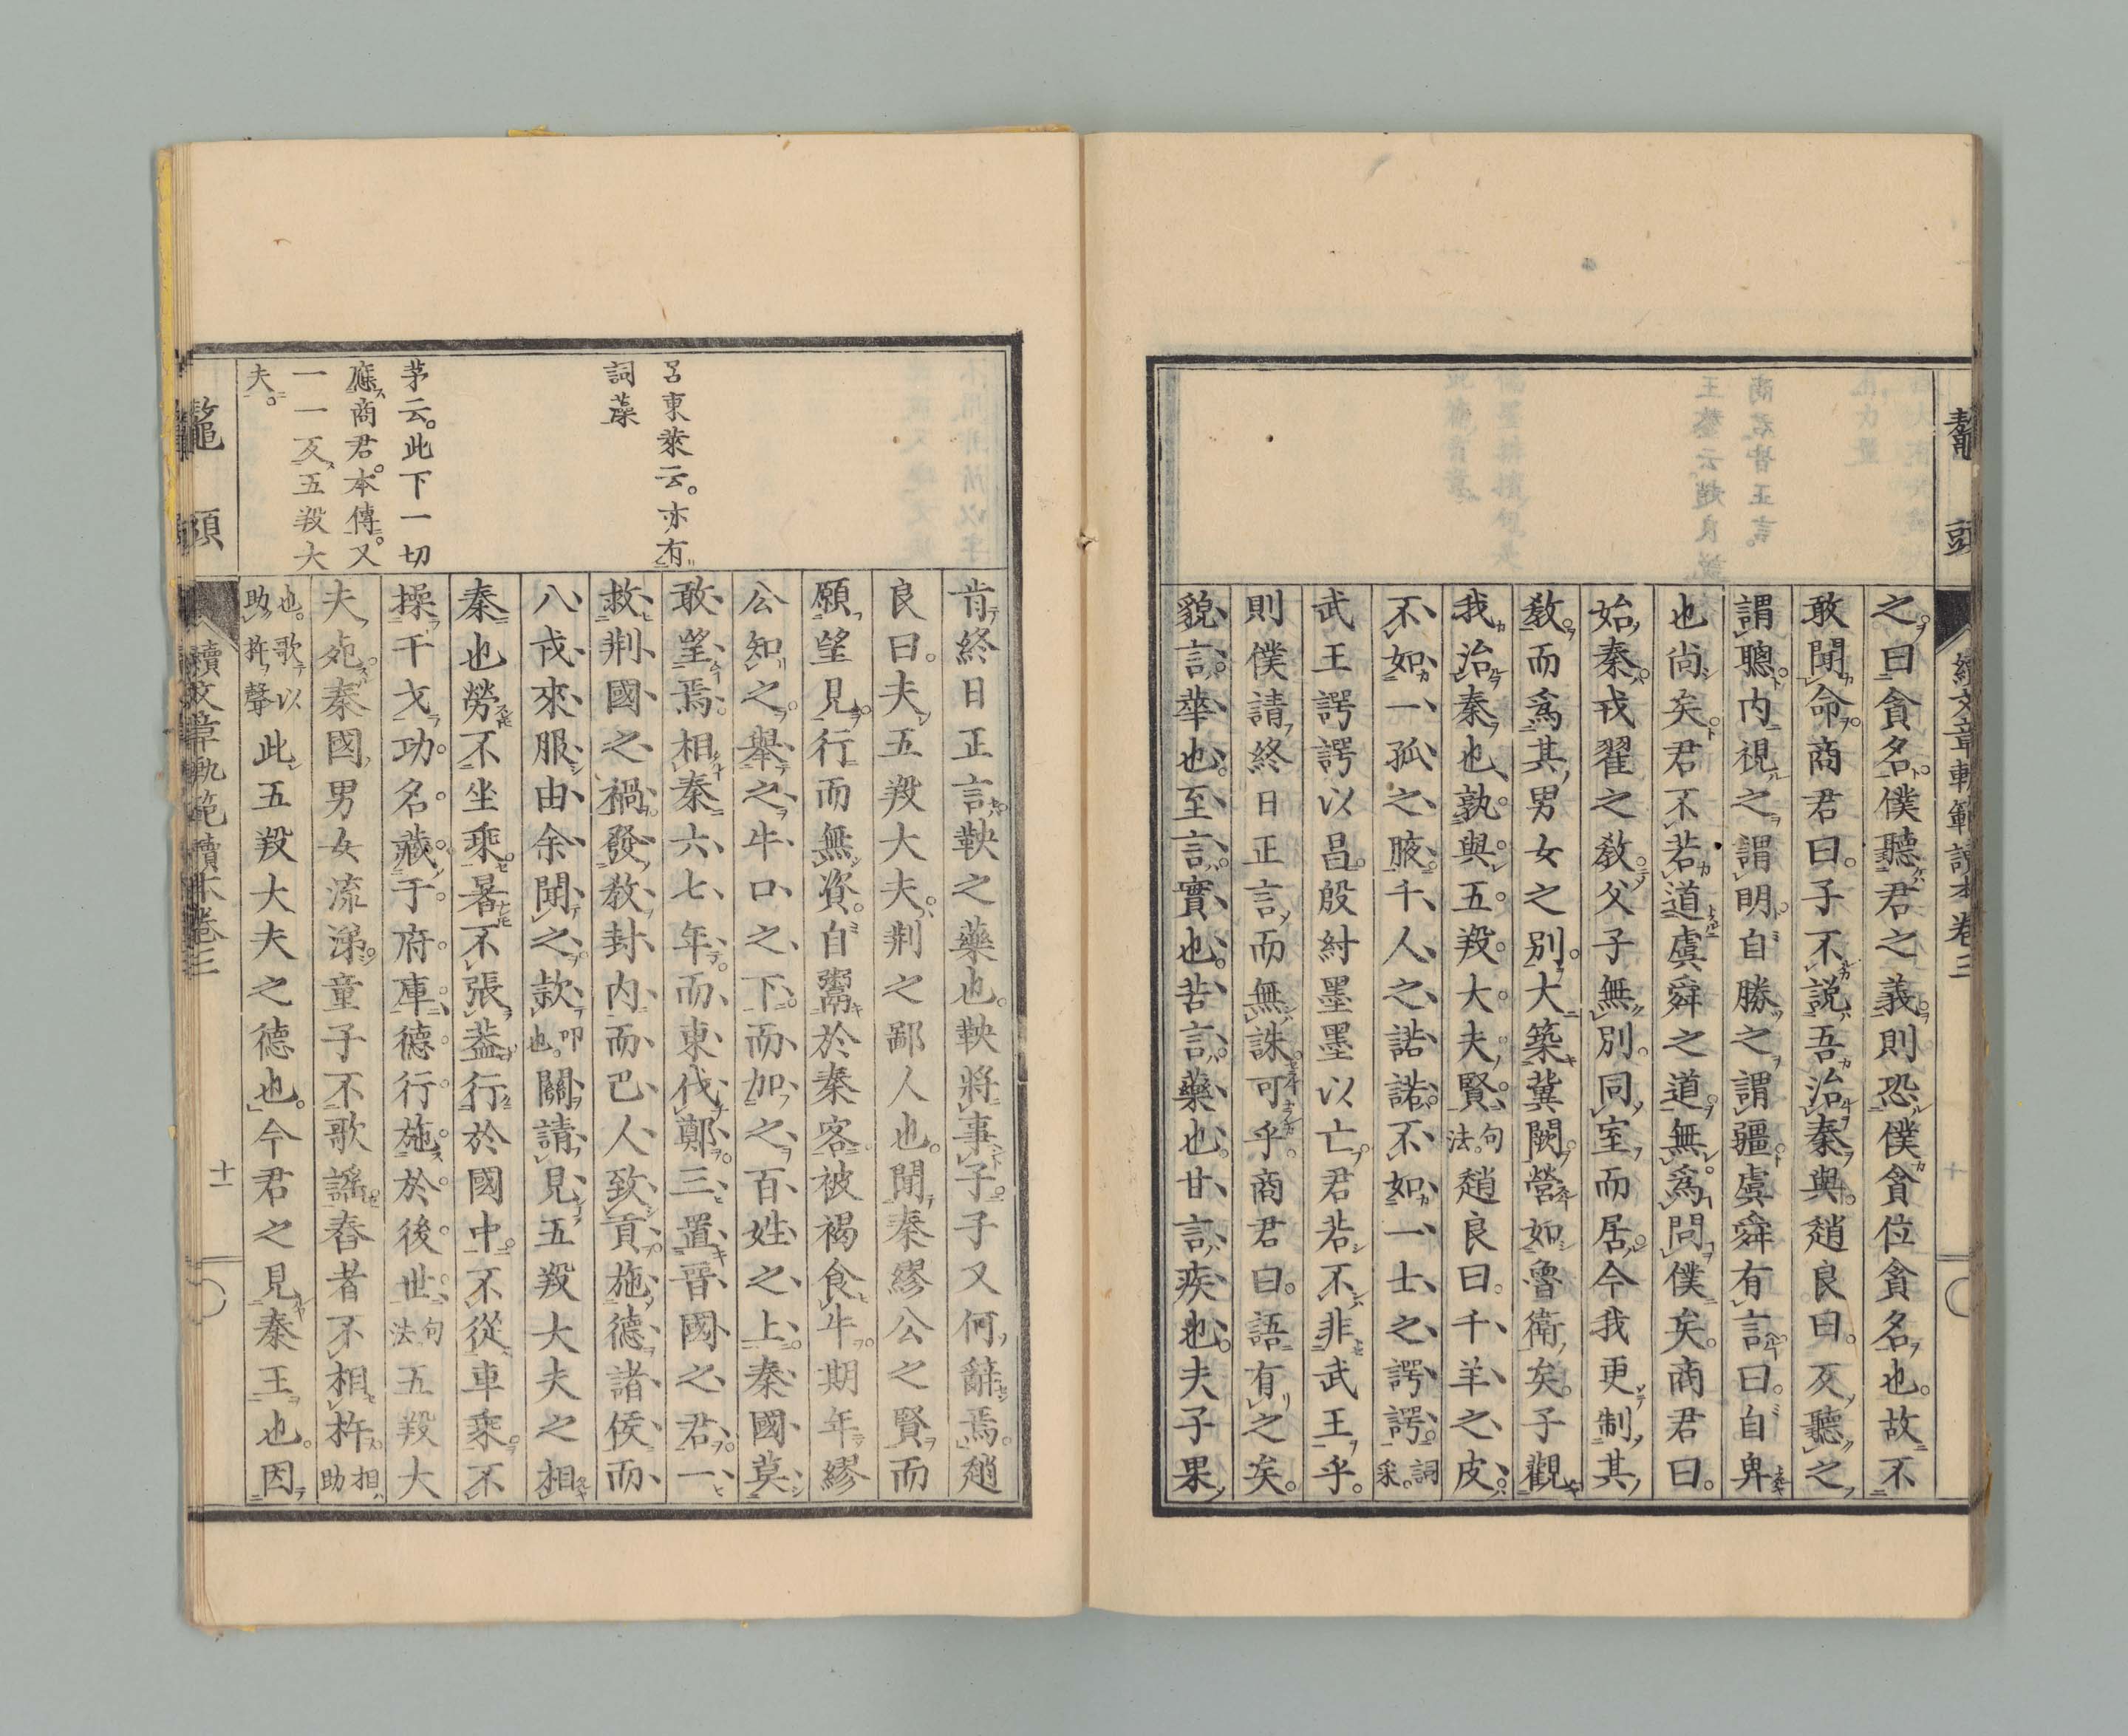 鼇頭
續文章軌範讀本卷三
之曰貪名僕聽君之義則恐僕貪位貪名也故不
敢聞命商君曰子不說吾治秦與趙良曰反聽之
謂聰內視之謂明自勝之謂疆虞舜有言曰自卑
也尚矣君不若道虞舜之道無爲問僕矣商君曰
始秦戎翟之敎父子無別同室而居今我更制其
敎而爲其男女之別大築冀闕營如魯衛矣子觀
我治秦也孰與五羖大夫賢句法趙良曰千羊之皮
不如一狐之腋千人之諾諾不如一士之諤諤詞采
武王諤諤以昌殷紂墨墨以亡君若不非武王乎
則僕請終日正言而無誅可乎商君曰語有之矣
貌言華也至言實也苦言藥也甘言疾也夫子果
呂東萊云。亦有
詞藻
茅云。此下一切
應商君。本傳。又
一一反五羖大
夫。
肯終日正言鞅之藥也鞅將事子子又何辭焉趙
良曰夫五羖大夫荊之鄙人也聞秦繆公之賢而
願望見行而無資自鬻於秦客被褐食牛期年繆
公知之舉之牛口之下而加之百姓之上秦國莫
敢望焉相秦六七年而東伐鄭三置晉國之君一
救荊國之禍發敎封內而巴人致貢施德諸侯而
八戎來服由余聞之款叩也。關請見五羖大夫之相
秦也勞不坐乘暑不張蓋行於國中不從車乘不
操干戈功名藏于府庫德行施於後世句法五羖大
夫死秦國男女流涕童子不歌謠舂者不相杵相助
也。歌以助杵聲此五羖大夫之德也今君之見秦王也因
鼇頭
續文章軌範讀本卷三
十一